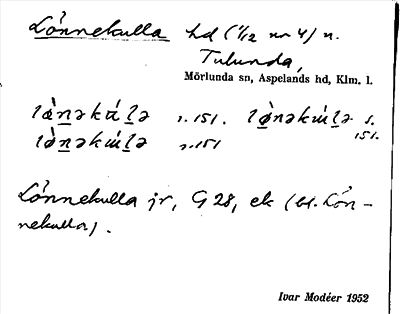 Lönnekulla hd (1/12 nr 4) n.
Tulunda,
Mörlunda sn, Aspelands hd, Klm. l.
lȯ̀nəkúlə s. 151. lȯ̀nəkúlə s. 151.
lȯ̀nəkúlə s. 151
Lönnekulla jr, G 28, ek (bl. Lön-
nekulla).
Ivar Modéer 1952